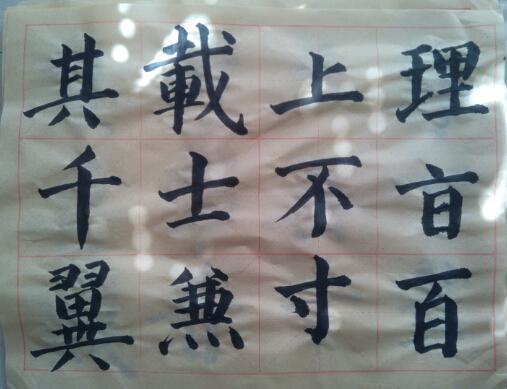 理百
上不寸
載士兼
其千翼